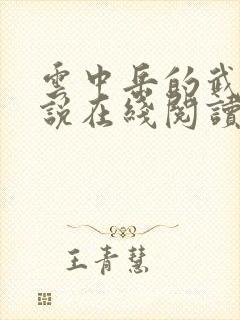 雲中岳的武
說在綫閱讀
王青慧